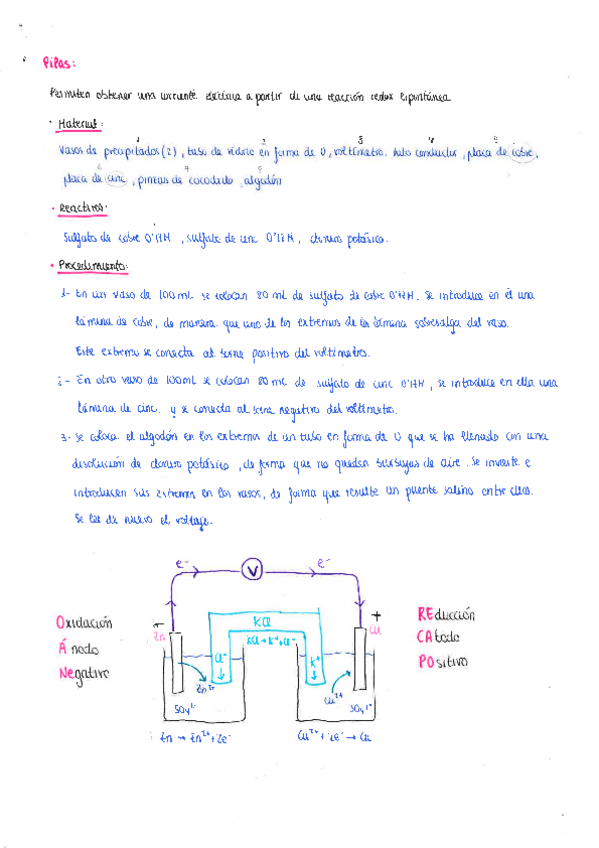 Pilas:
Permiten obtener una corriente eléctrica a partir de una reacción redox espontánea
· Material:
1 2 3 4 5
Vasos de precipitados (2), tubo de vidrio en forma de U, voltímetro, hilo conductor, placa de cobre,
7 8
placa de cinc, pinzas de cocodrilo, algodón
· Reactivos:
Sulfato de cobre 0'1M, sulfato de cinc 0'1M, cloruro potásico.
· Procedimiento:
1- En un vaso de 100mL se colocan 80 mL de sulfato de cobre 0'1M. Se introduce en él una
lámina de cobre, de manera que uno de los extremos de la lámina sobresalga del vaso.
Este extremo se conecta al borne positivo del voltímetro.
2- En otro vaso de 100mL se colocan 80 mL de sulfato de cinc 0'1M, se introduce en ella una
lámina de cinc y se conecta al borne negativo del voltímetro.
3- Se coloca el algodón en los extremos de un tubo en forma de U que se ha llenado con una
disolución de cloruro potásico, de forma que no queden burbujas de aire. Se invierte e
introducen sus extremos en los vasos, de forma que resulte un puente salino entre ellos.
Se lee de nuevo el voltaje.
e⁻ V e⁻
Oxidación
Ánodo
Negativo
- Zn
KCl
KCl → K⁺ + Cl⁻
Cl⁻ K⁺
+ Cu
REducción
CAtodo
POsitivo
Zn²⁺ Cu²⁺
SO₄²⁻ SO₄²⁻
Zn → Zn²⁺ + 2e⁻ Cu²⁺ + 2e⁻ → Cu